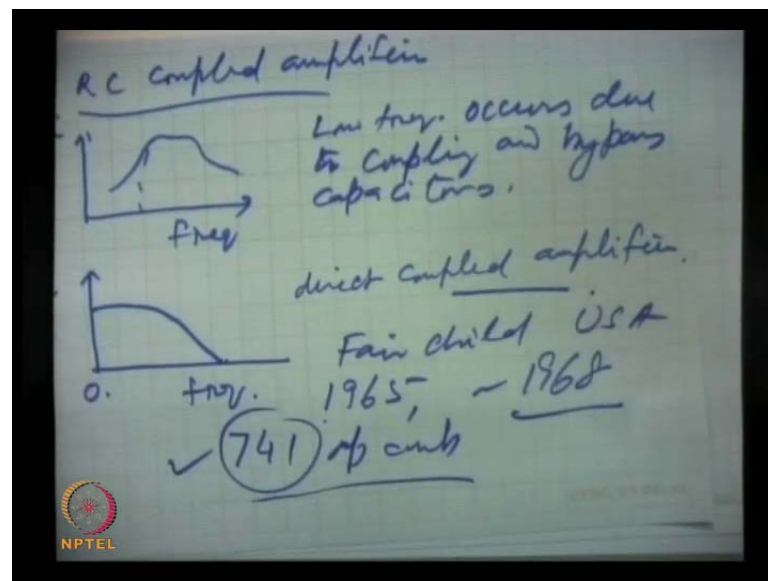 RC Coupled amplifier
Low freq. occurs due
to coupling and bypass
capacitors.
freq
direct coupled amplifier.
Fair child USA
0. freq. 1965, ~ 1968
✓ 741 op amb
NPTEL